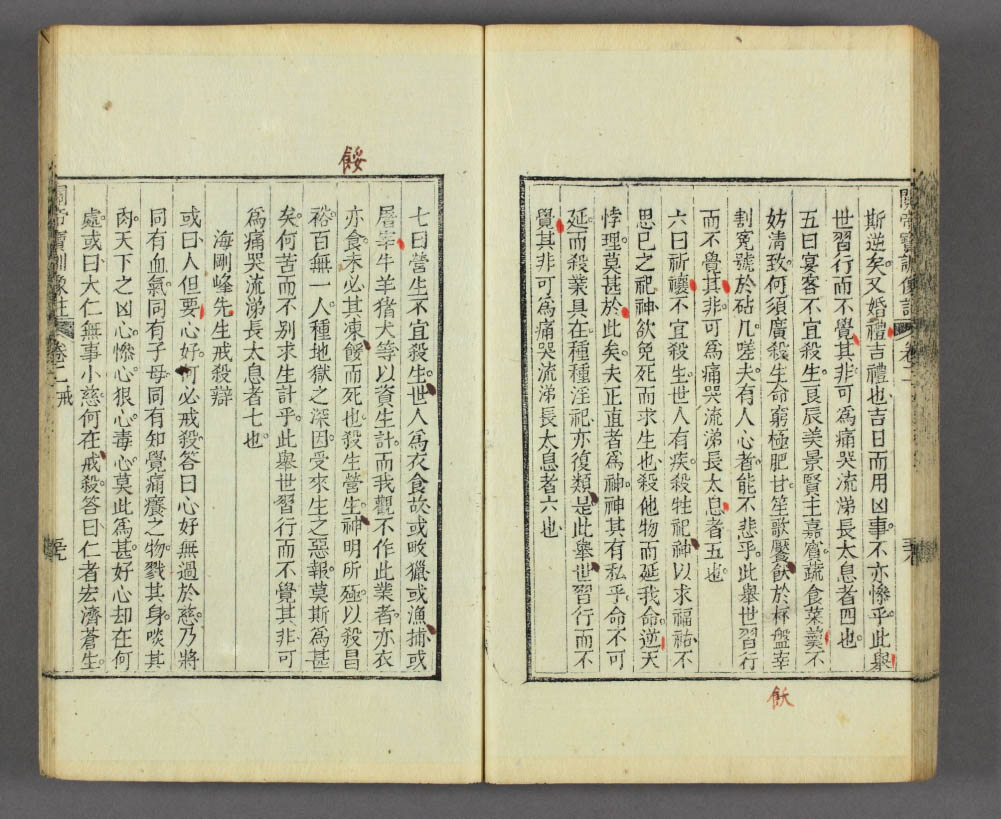 關帝寶訓像註 卷二
斯逆矣又婚禮吉禮也吉日而用凶事不亦慘乎此舉
世習行而不覺其非可為痛哭流涕長太息者四也
五曰宴客不宜殺生良辰美景賢主嘉賓蔬食菜羹不
妨清致何須廣殺生命窮極肥甘笙歌饜飫於杯盤宰
割寃號於砧几嗟夫有人心者能不悲乎此舉世習行
而不覺其非可為痛哭流涕長太息者五也
六曰祈禳不宜殺生世人有疾殺牲祀神以求福祐不
思已之祀神欲免死而求生也殺他物而延我命逆天
悖理莫甚於此矣夫正直者為神神其有私乎命不可
延而殺業具在種種淫祀亦復類是此舉世習行而不
覺其非可為痛哭流涕長太息者六也
飫
餒
七曰營生不宜殺生世人為衣食故或畋獵或漁捕或
屠宰牛羊猪犬等以資生計而我觀不作此業者亦衣
亦食未必其凍餒而死也殺生營生神明所殛以殺昌
裕百無一人種地獄之深因受來生之惡報莫斯為甚
矣何苦而不别求生計乎此舉世習行而不覺其非可
為痛哭流涕長太息者七也
海剛峰先生戒殺辯
或曰人但要心好何必戒殺答曰心好無過於慈乃將
同有血氣同有子母同有知覺痛癢之物戮其身啖其
肉天下之凶心慘心狠心毒心莫此為甚好心却在何
處或曰大仁無事小慈何在戒殺答曰仁者宏濟蒼生
關帝寶訓像註 卷二 戒